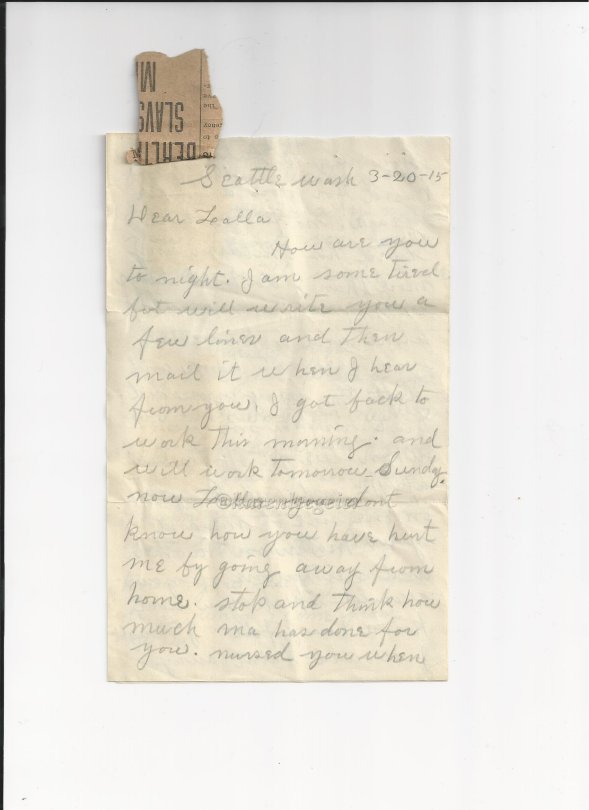 MI
SLAVS
BERLIN
Seattle Wash 3-20-15
Dear Lealla
How are you
to night. I am some tired
but will write you a
few lines and then
mail it when I hear
from you. I got back to
work this morning. and
will work tomorrow Sundy.
now Lealla you dont
know how you have hurt
me by going away from
home. stop and think how
much ma has done for
you. nursed you when